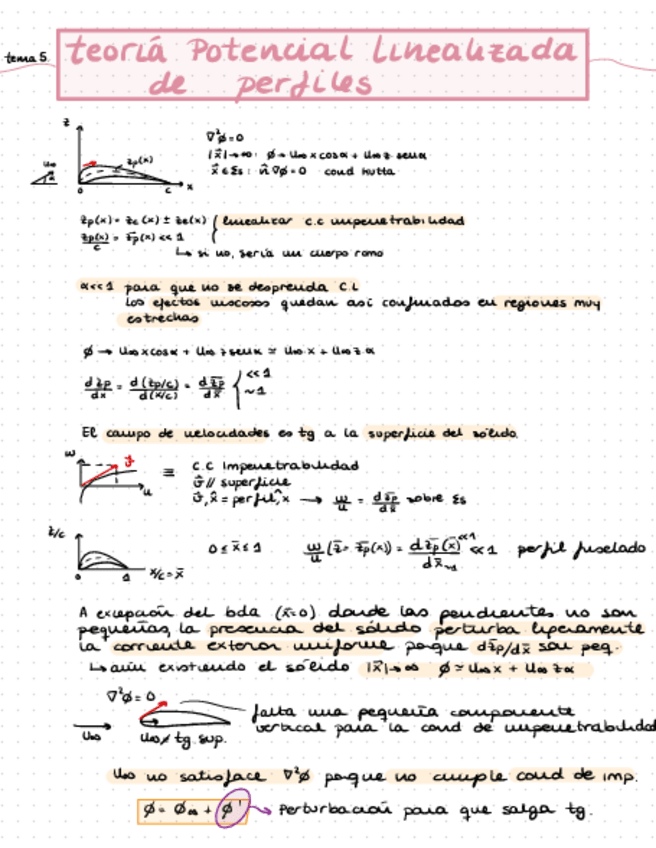 tema 5.
teoría Potencial Linealizada
de perfiles
z
zp(x)
U∞
α
0
c
x
∇²ϕ=0
|x⃗|→∞: ϕ→ U∞ x cosα + U∞ z senα
x⃗ ∈ Σs: n⃗·∇ϕ=0 cond kutta
zp(x) = zc(x) ± ze(x)
linealizar c.c impenetrabilidad
zp(x)/c = z̄p(x) << 1
↳ si no, sería un cuerpo romo
α<<1 para que no se desprenda C.L
Los efectos viscosos quedan así confinados en regiones muy
estrechas
ϕ → U∞ x cosα + U∞ z senα ≃ U∞ x + U∞ z α
dzp/dx = d(zp/c)/d(x/c) = dz̄p/dx̄ { <<1
~1
El campo de velocidades es tg a la superficie del sólido.
w
v⃗
u
≡
C.C Impenetrabilidad
v⃗ // superficie
v⃗, x̂ = perfil, x̂ → w/u = dz̄p/dx̄ sobre Σs
z/c
0
1
x/c = x̄
0 ≤ x̄ ≤ 1
w/u (z̄ = z̄p(x)) = dz̄p(x)^<<1/dx̄_~1 <<1 perfil fuselado
A excepción del bda (x̄=0) donde las pendientes no son
pequeñas, la presencia del sólido perturba ligeramente
la corriente exterior uniforme porque dz̄p/dx̄ son peq.
↳ aún existiendo el sólido |x̄|→∞ ϕ ≃ U∞ x + U∞ z α
∇²ϕ=0
U∞
U∞ ≠ tg. sup.
falta una pequeña componente
vertical para la cond de impenetrabilidad
U∞ no satisface ∇²ϕ porque no cumple cond de imp.
ϕ = ϕ∞ + ϕ' → Perturbación para que salga tg.